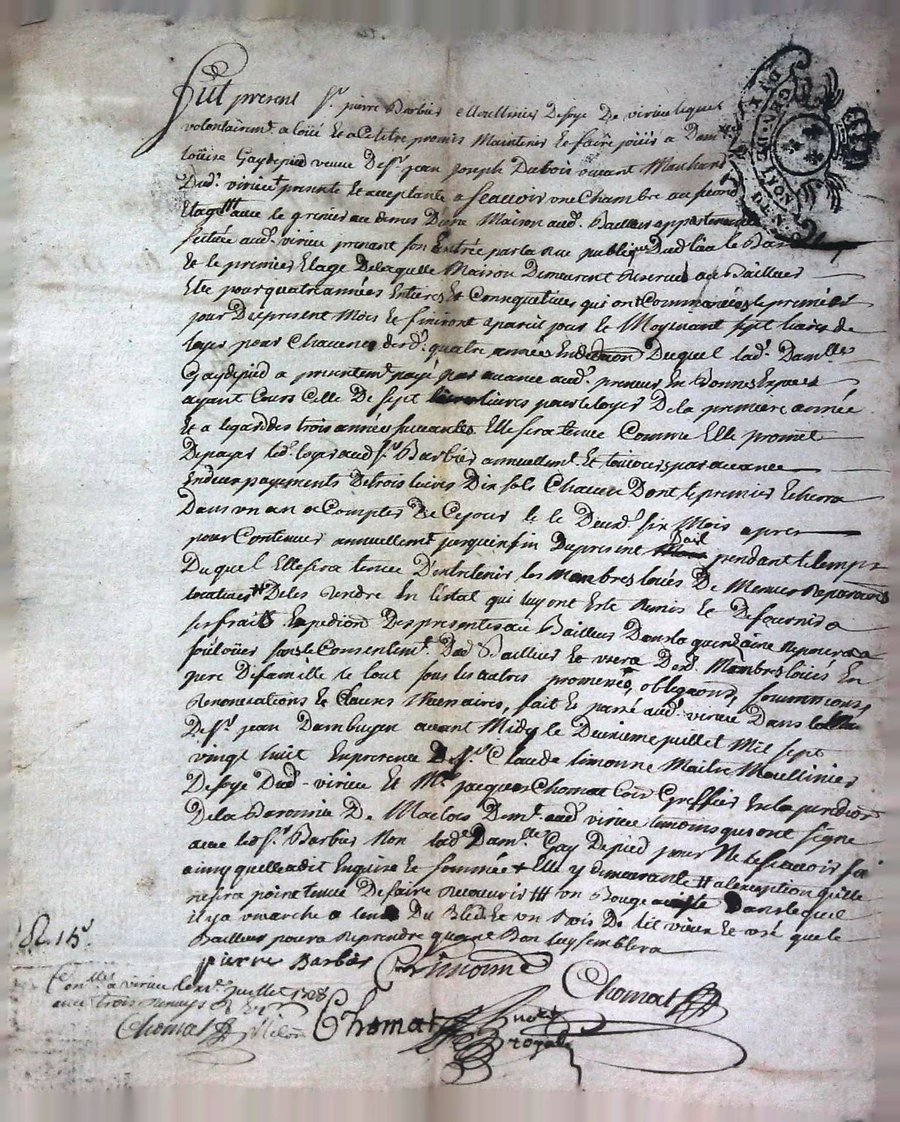 Fut present Sr. pierre Barbier Moullinier De soye De virieu lequel
volontairemt. a loüé Et a Ce titre promis Maintenir Et faire joüir a Dam
loüise Gaydepied veuve De Sr. jean joseph Dubois vivant Marchand
Dud. virieu presente Et acceptante a scavoir vne Chambre au second
Etage avec le grenier au dessus D'une Maison aud. Bailleur appartenante
scituée aud. virieu prenant son Entrée par la rue publique Dud lieu le Bas
Et le premier Etage De laquelle Maison Demeurent reservés aud Bailleur
Et ce pour quatre années Entieres Et Consequtives qui ont Commencées le premier
jour Du present Mois Et finiront a pareil jour Et Moyenant sept livres de
loyer pour Chacune desd. quatre années En duquel lad. Damlle
Gaydepied a presentemt. payé par avance aud. preneur En Bonnes Especes
ayant Cours Celle De sept livres pour le loyer De la premiere année
Et a legard des trois années suivantes Elle sera tenue Comme Elle promet
De payer led. loyer aud Sr. Barbier annuellemt. Et toujours par avance
En deux payements De trois livres Dix sols Chacun Dont le premier Echerra
Dans vn an a Compter De Ce jour Et le Deuxd. six Mois apres
pour Continuer annuellemt. jusquen fin Du present Bail pendant le temps
Duquel Elle sera tenue D'entretenir les Membres loüés De Menues Reparations
locatives De les rendre En l'estat qui luy ont Esté Remis Et De fournir a
ses frais Expedition Des presentes au Bailleur Dans la quinzaine ne pourra
soûloüer sans le Consentemt. Dud Bailleur Et vsera Desd. Membres loüés En
pere De famille le tout sous les autres promesses, obligations, soummissions,
Renonciations Et Clauses Necessaires, fait Et passé aud. virieu Dans
De Sr. jean Dambuyen avant Midy le Deuxieme juillet Mil sept
vingt huit En presence De Sr. Claude limonne Maitre Moullinier
De soye Dud. virieu Et Me. jacques Chomat Greffier En la juridiction
De la Baronnie De Malocs Demt. aud. virieu temoins qui ont signé
avec led Sr. Barbier Non lad Damlle. Gay Depied pour Ne le scavoir fai
ainsy quelle a dit Enquise Et sommée + Elle y demeurante # a lexception quelle
ne sera point tenue De faire recouvrir # vn Bouge Dans lequel
il y a vn arche a tenir Du Bled Et vn Bois De lit vieux Et vsé que le
Bailleur poura reprendre quand Bon luy semblera
pierre Barbier C limonne
Chomat
R. 15s.
Con.llé a virieu le juillet 1728
avec trois renvoys R
Chomat
Chomat Notre royal
GEN. DE LYON